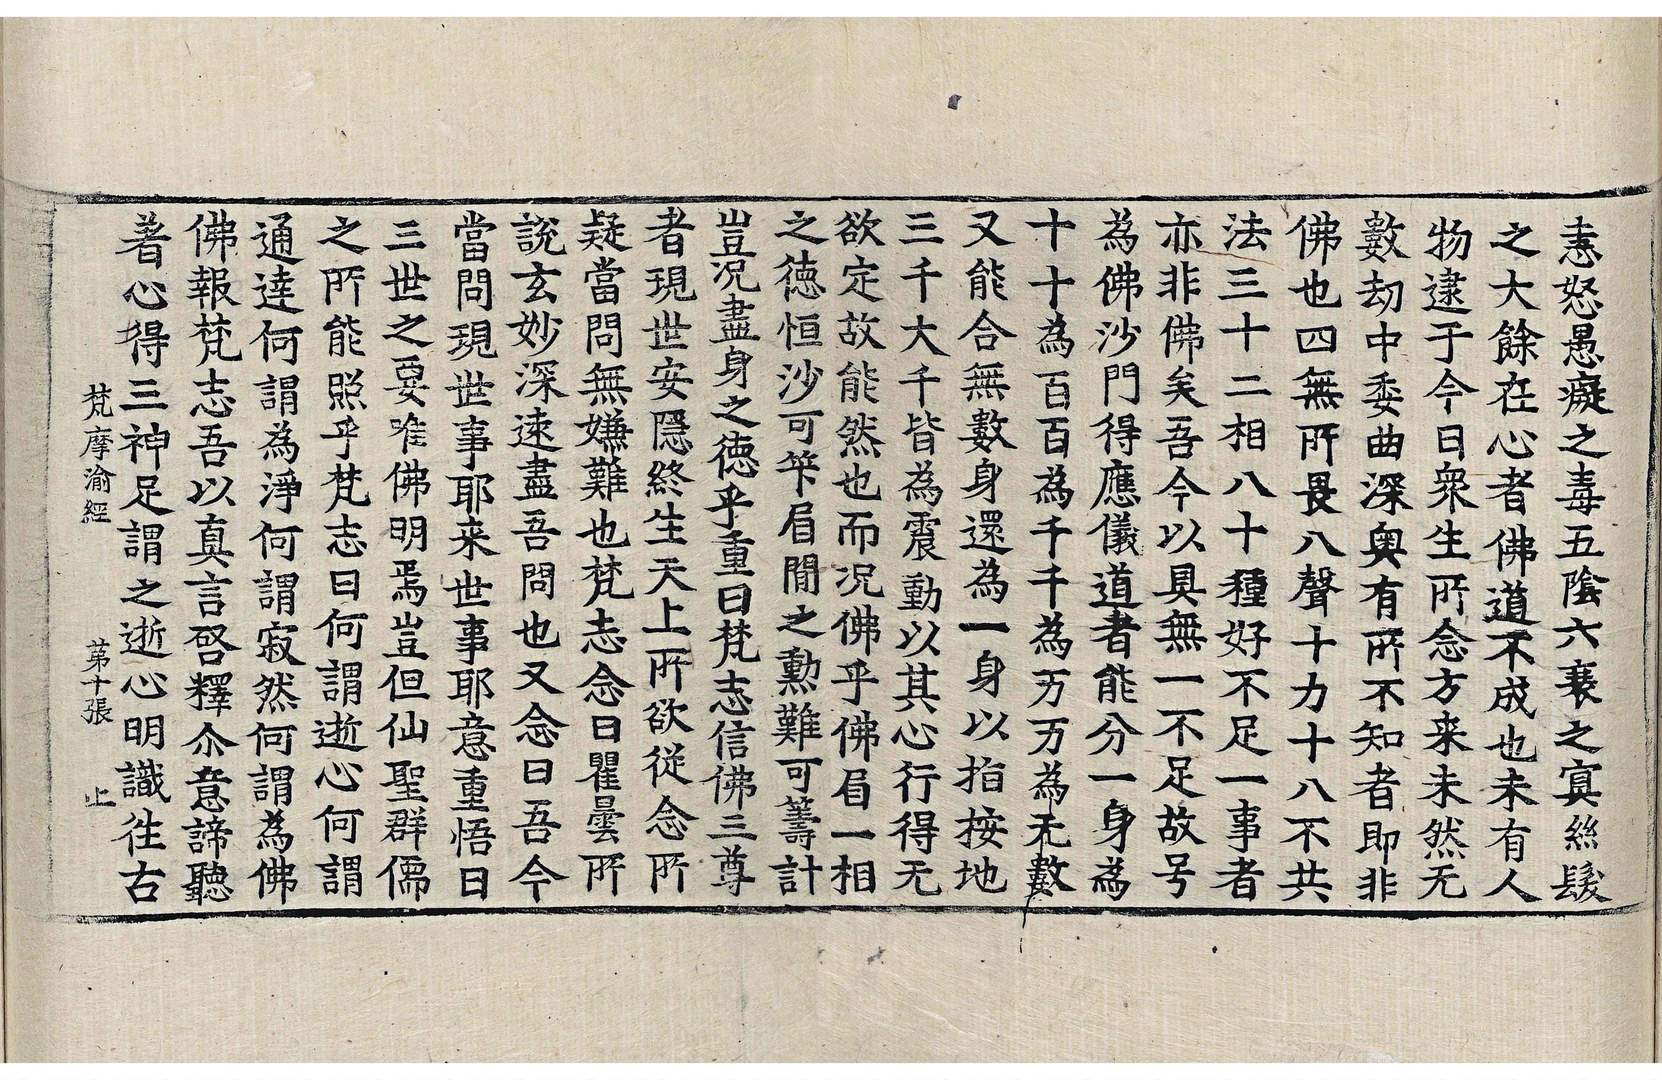 恚怒愚癡之毒五陰六衰之㝠絲髮
之大餘在心者佛道不成也未有人
物逮于今日衆生所念方来未然无
數劫中委曲深奥有所不知者即非
佛也四無所畏八聲十力十八不共
法三十二相八十種好不足一事者
亦非佛矣吾今以具無一不足故号
為佛沙門得應儀道者能分一身為
十十為百百為千千為万万為无數
又能合無數身還為一身以指按地
三千大千皆為震動以其心行得无
欲定故能然也而况佛乎佛眉一相
之徳恒沙可筭眉間之勲難可籌計
豈况盡身之徳乎重曰梵志信佛三尊
者現世安隱終生天上所欲從念所
疑當問無嫌難也梵志念曰瞿曇所
說玄妙深遠盡吾問也又念曰吾今
當問現世事耶来世事耶意重悟曰
三世之要唯佛明焉豈但仙聖群儒
之所能照乎梵志曰何謂逝心何謂
通達何謂為淨何謂寂然何謂為佛
佛報梵志吾以真言啓釋尒意諦聽
著心得三神足謂之逝心明識徃古
梵摩渝經 第十張 止